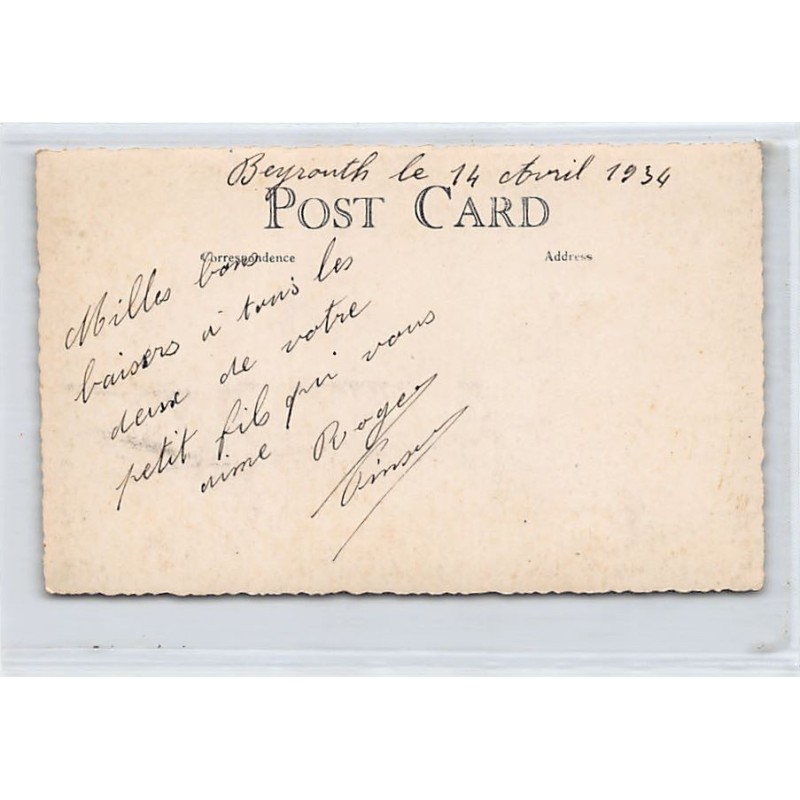 Beyrouth le 14 Avril 1934
POST CARD
Correspondence
Address
Milles bons
baisers à tous les
deux de votre
petit fils qui vous
aime Roger